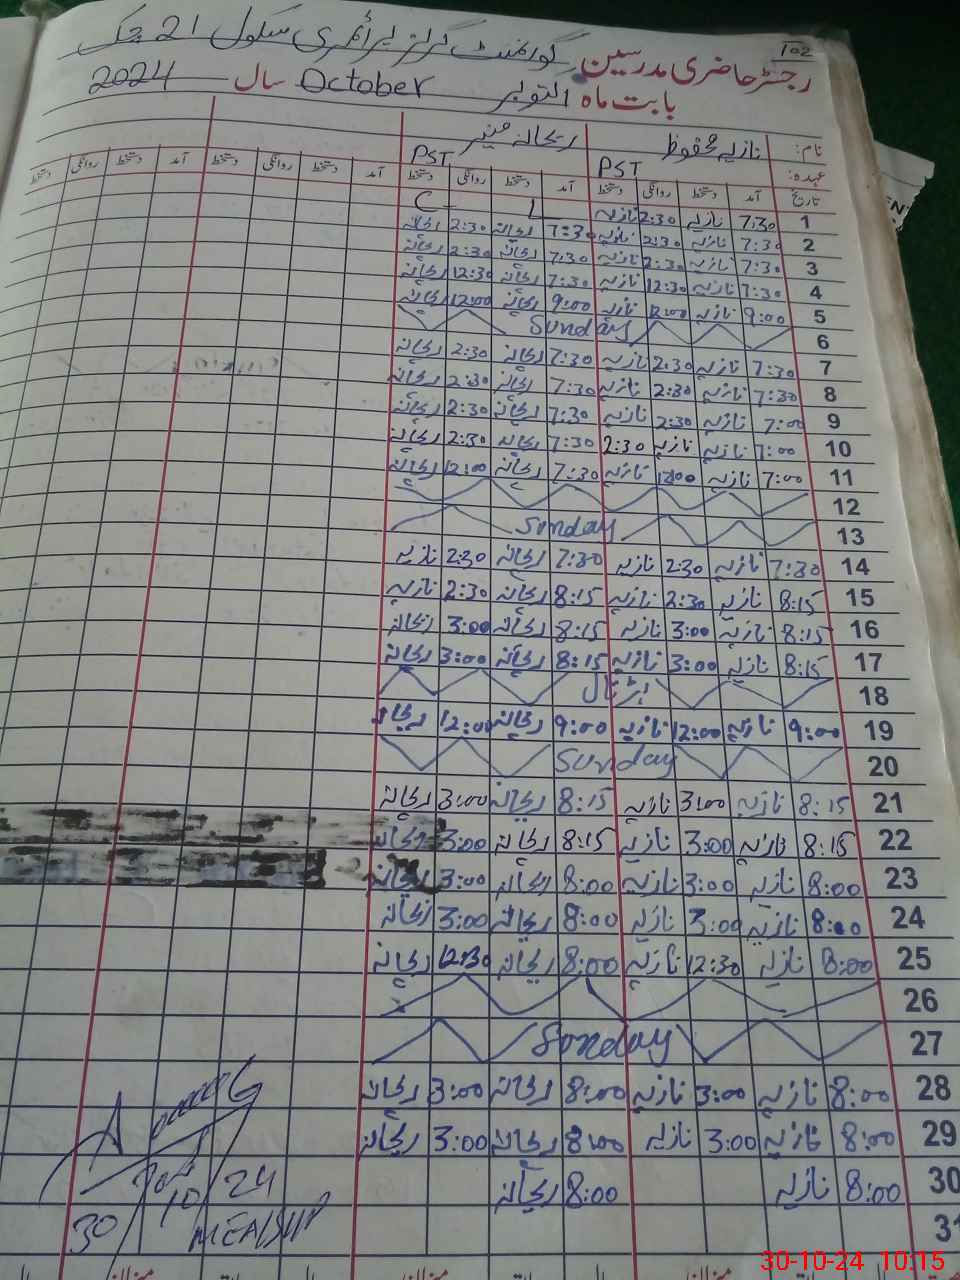 102
گورنمنٹ گرلز پرائمری سکول 21 چک
رجسٹر حاضری مدرسین
بابت ماہ اکتوبر October سال 2024
نام: نازیہ محفوظ ریحانہ منیر
عہدہ: PST PST
تاریخ آمد دستخط روانگی دستخط آمد دستخط روانگی دستخط آمد دستخط روانگی دستخط آمد دستخط روانگی دستخط
1 7:30 نازیہ 2:30 نازیہ L C
2 7:30 نازیہ 2:30 نازیہ 7:30 ریحانہ 2:30 ریحانہ
3 7:30 نازیہ 2:30 نازیہ 7:30 ریحانہ 2:30 ریحانہ
4 7:30 نازیہ 12:30 نازیہ 7:30 ریحانہ 12:30 ریحانہ
5 9:00 نازیہ 12:00 نازیہ 9:00 ریحانہ 12:00 ریحانہ
6 Sunday
7 7:30 نازیہ 2:30 نازیہ 7:30 ریحانہ 2:30 ریحانہ
8 7:30 نازیہ 2:30 نازیہ 7:30 ریحانہ 2:30 ریحانہ
9 7:00 نازیہ 2:30 نازیہ 7:30 ریحانہ 2:30 ریحانہ
10 7:00 نازیہ نازیہ 2:30 7:30 ریحانہ 2:30 ریحانہ
11 7:00 نازیہ 12:00 نازیہ 7:30 ریحانہ 12:00 ریحانہ
12
13 Sunday
14 7:30 نازیہ 2:30 نازیہ 7:30 ریحانہ 2:30 نازیہ
15 8:15 نازیہ 2:30 نازیہ 8:15 ریحانہ 2:30 نازیہ
16 8:15 نازیہ 3:00 نازیہ 8:15 ریحانہ 3:00 ریحانہ
17 8:15 نازیہ 3:00 نازیہ 8:15 ریحانہ 3:00 ریحانہ
18 ہڑتال
19 9:00 نازیہ 12:00 نازیہ 9:00 ریحانہ 12:00 ریحانہ
20 Sunday
21 8:15 نازیہ 3:00 نازیہ 8:15 ریحانہ 3:00 ریحانہ
22 8:15 نازیہ 3:00 نازیہ 8:15 ریحانہ 3:00 ریحانہ
23 8:00 نازیہ 3:00 نازیہ 8:00 ریحانہ 3:00 ریحانہ
24 8:00 نازیہ 3:00 نازیہ 8:00 ریحانہ 3:00 ریحانہ
25 8:00 نازیہ 12:30 نازیہ 8:00 ریحانہ 12:30 ریحانہ
26
27 Sunday
28 8:00 نازیہ 3:00 نازیہ 8:00 ریحانہ 3:00 ریحانہ
29 8:00 نازیہ 3:00 نازیہ 8:00 ریحانہ 3:00 ریحانہ
30 8:00 نازیہ 8:00 ریحانہ
31
30/10/24
30-10-24 10:15